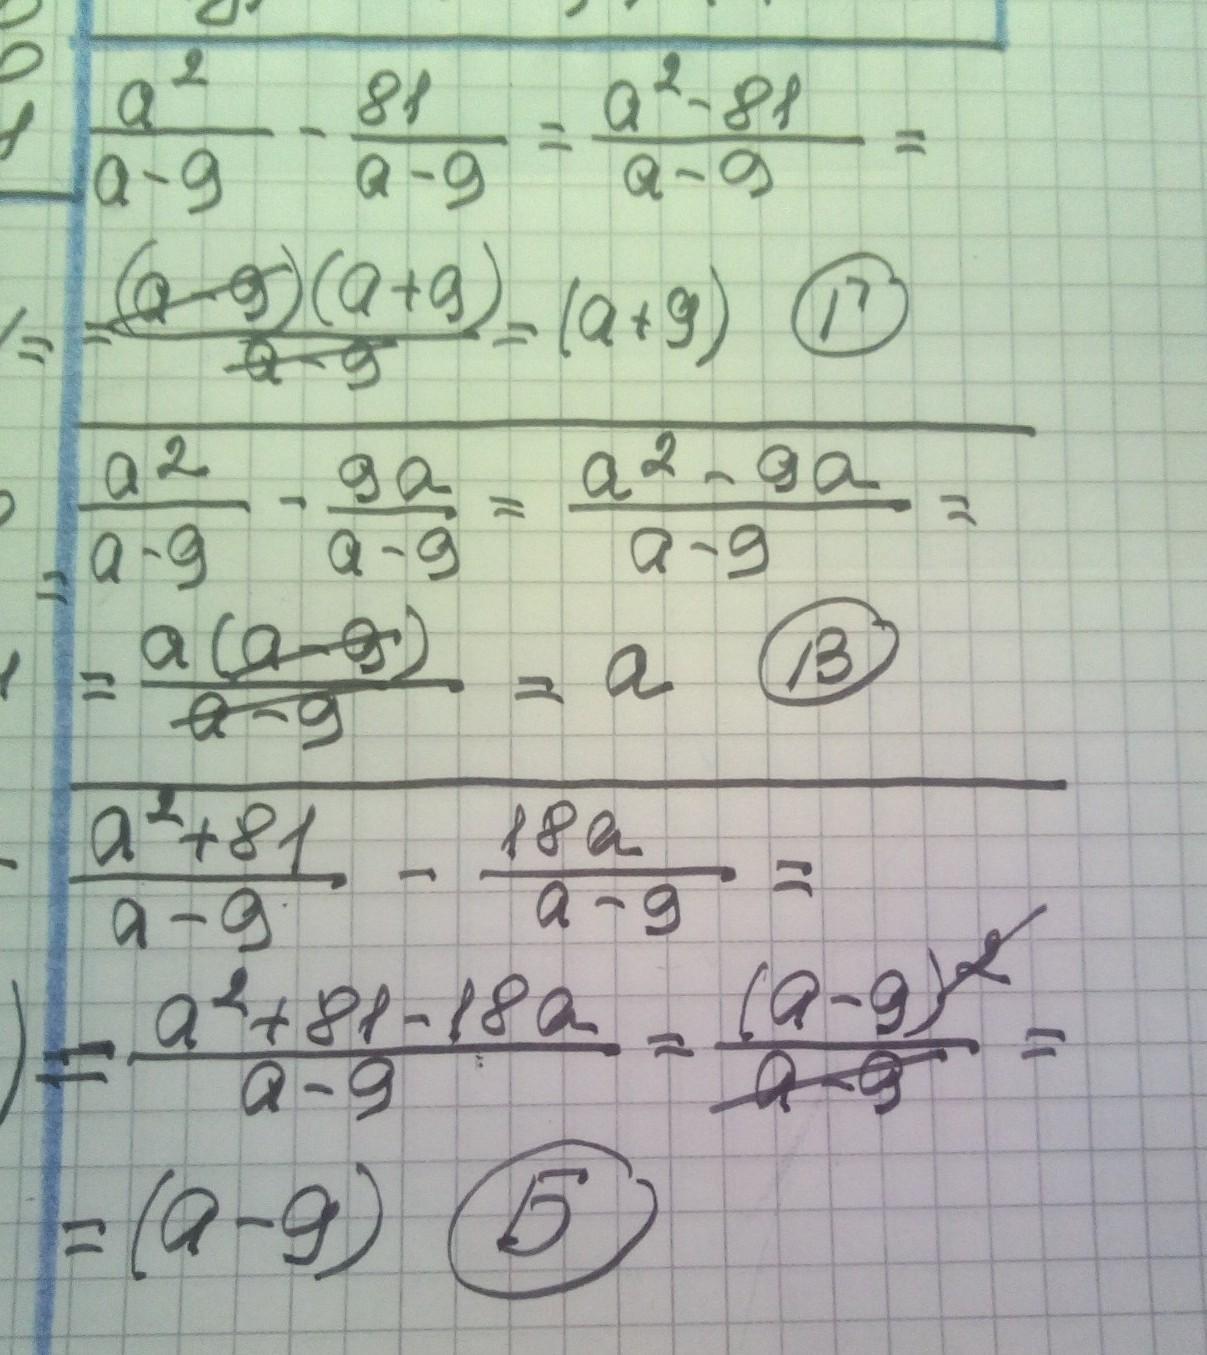 a²/(a-9) - 81/(a-9) = (a²-81)/(a-9) =
= (a-9)(a+9)/(a-9) = (a+9) Г
a²/(a-9) - 9a/(a-9) = (a²-9a)/(a-9) =
= a(a-9)/(a-9) = a В
(a²+81)/(a-9) - 18a/(a-9) =
= (a²+81-18a)/(a-9) = (a-9)²/(a-9) =
= (a-9) Б